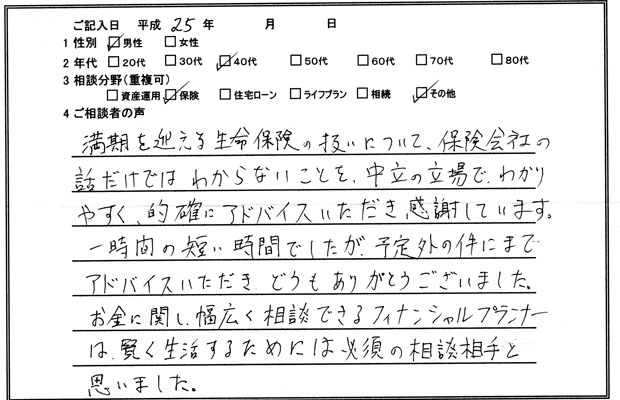 ご記入日 平成 25 年 月 日
1 性別 ☑男性 □女性
2 年代 □20代 □30代 ☑40代 □50代 □60代 □70代 □80代
3 相談分野(重複可)
□資産運用 ☑保険 □住宅ローン □ライフプラン □相続 ☑その他
4 ご相談者の声
満期を迎える生命保険の扱いについて、保険会社の
話だけでは わからないことを、中立の立場で、わかり
やすく、的確にアドバイスいただき、感謝しています。
一時間の短い時間でしたが、予定外の件にまで
アドバイスいただき、どうもありがとうございました。
お金に関し、幅広く相談できるファイナンシャルプランナー
は、賢く生活するためには必須の相談相手と
思いました。